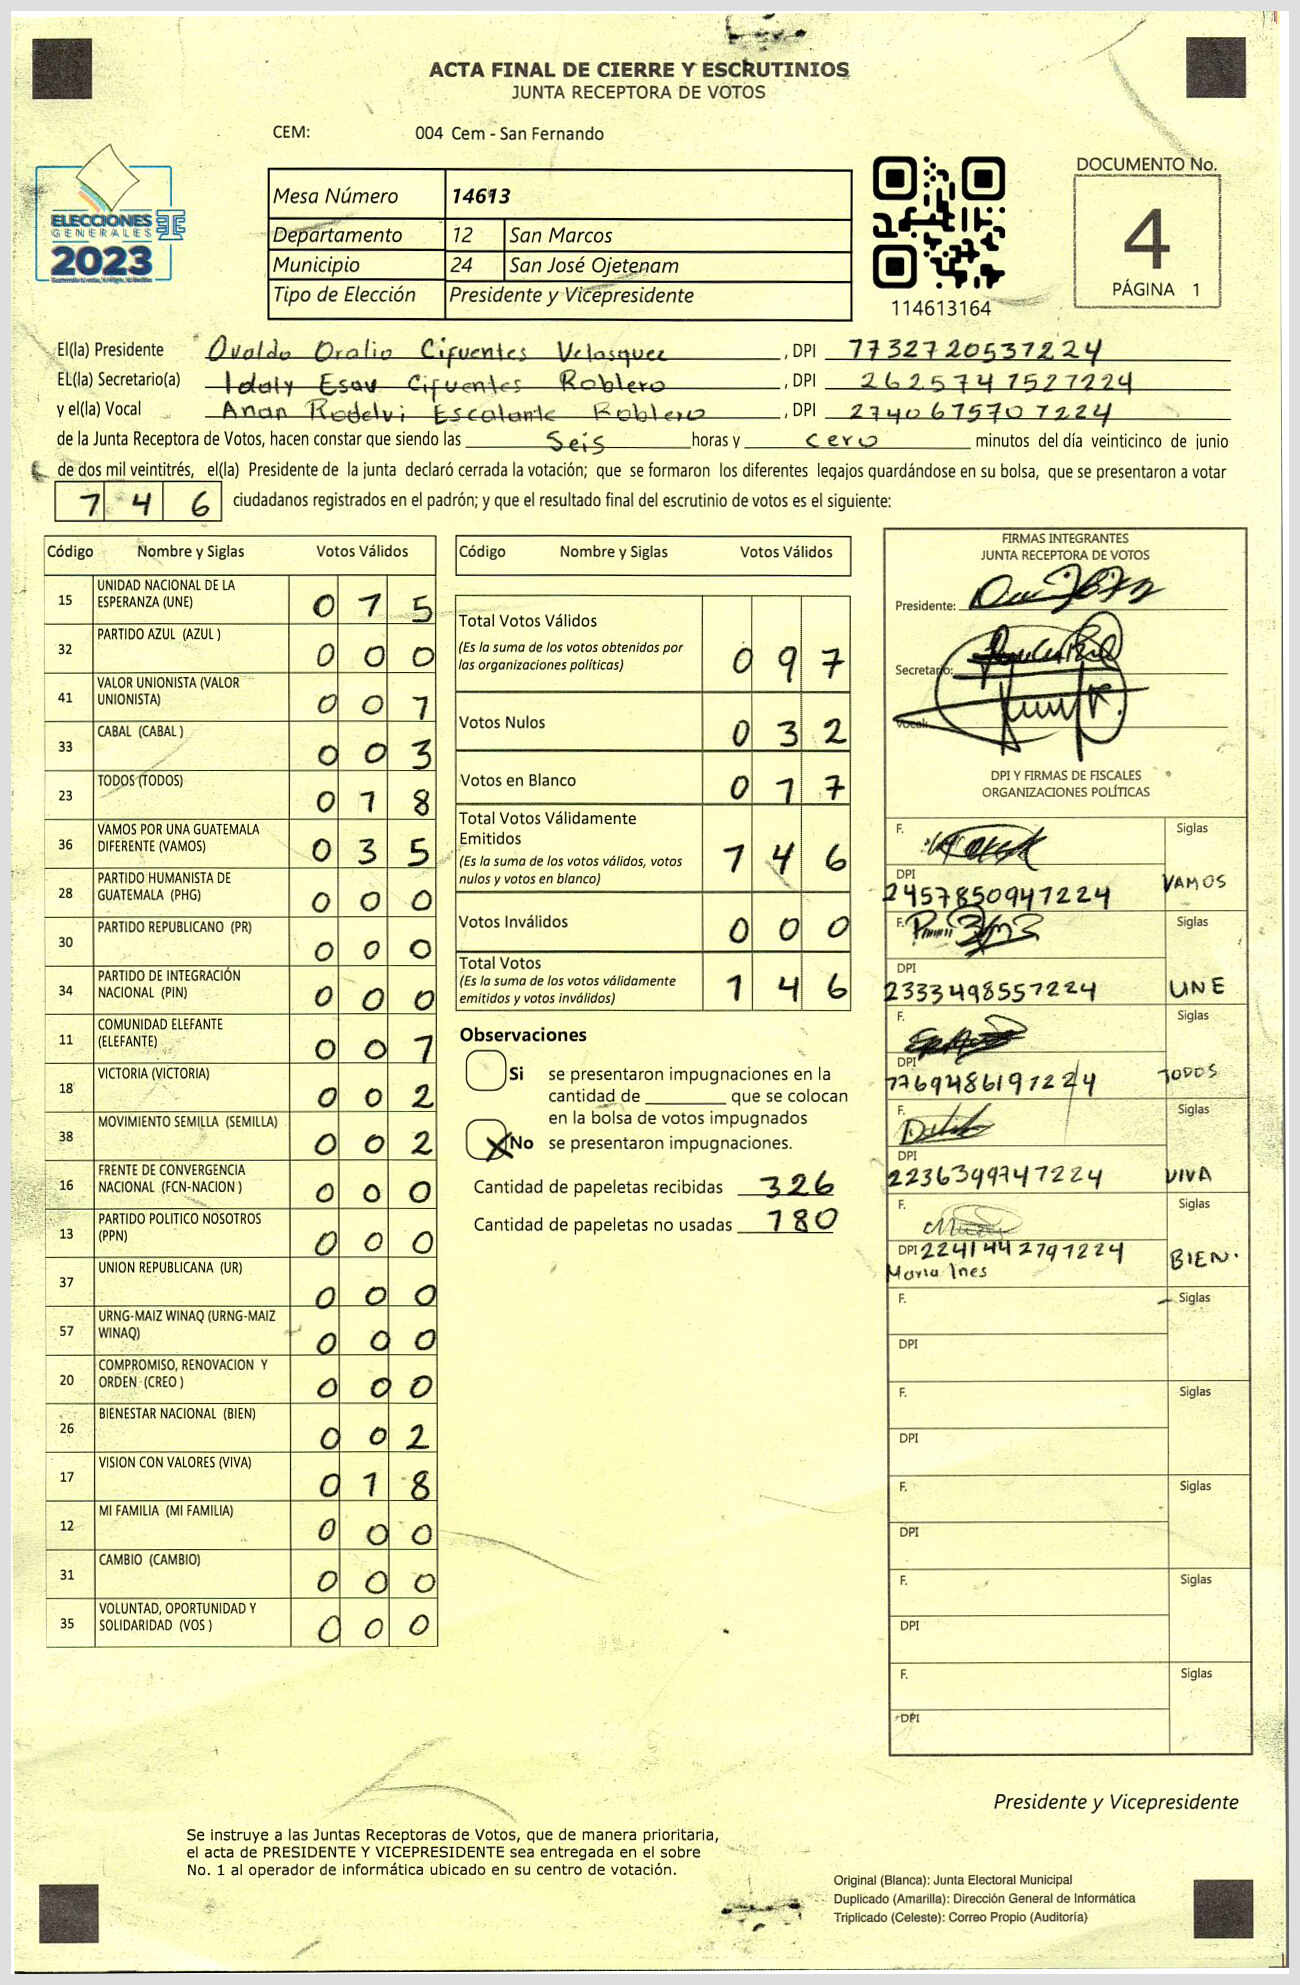 ACTA FINAL DE CIERRE Y ESCRUTINIOS
JUNTA RECEPTORA DE VOTOS
CEM: 004 Cem - San Fernando
ELECCIONES
GENERALES
2023
Mesa Número 14613
Departamento 12 San Marcos
Municipio 24 San José Ojetenam
Tipo de Elección Presidente y Vicepresidente
114613164
DOCUMENTO No.
4
PÁGINA 1
El(la) Presidente Ovaldo Oralio Cifuentes Velasquez , DPI 1732720531224
EL(la) Secretario(a) Idaly Esau Cifuentes Roblero , DPI 2625741521224
y el(la) Vocal Anan Rodelvi Escalante Roblero , DPI 2740675701224
de la Junta Receptora de Votos, hacen constar que siendo las Seis horas y cero minutos del día veinticinco de junio
de dos mil veintitrés, el(la) Presidente de la junta declaró cerrada la votación; que se formaron los diferentes legajos guardándose en su bolsa, que se presentaron a votar
1 4 6 ciudadanos registrados en el padrón; y que el resultado final del escrutinio de votos es el siguiente:
Código Nombre y Siglas Votos Válidos
15 UNIDAD NACIONAL DE LA ESPERANZA (UNE) 0 1 5
32 PARTIDO AZUL (AZUL ) 0 0 0
41 VALOR UNIONISTA (VALOR UNIONISTA) 0 0 1
33 CABAL (CABAL ) 0 0 3
23 TODOS (TODOS) 0 1 8
36 VAMOS POR UNA GUATEMALA DIFERENTE (VAMOS) 0 3 5
28 PARTIDO HUMANISTA DE GUATEMALA (PHG) 0 0 0
30 PARTIDO REPUBLICANO (PR) 0 0 0
34 PARTIDO DE INTEGRACIÓN NACIONAL (PIN) 0 0 0
11 COMUNIDAD ELEFANTE (ELEFANTE) 0 0 1
18 VICTORIA (VICTORIA) 0 0 2
38 MOVIMIENTO SEMILLA (SEMILLA) 0 0 2
16 FRENTE DE CONVERGENCIA NACIONAL (FCN-NACION ) 0 0 0
13 PARTIDO POLITICO NOSOTROS (PPN) 0 0 0
37 UNION REPUBLICANA (UR) 0 0 0
57 URNG-MAIZ WINAQ (URNG-MAIZ WINAQ) 0 0 0
20 COMPROMISO, RENOVACION Y ORDEN (CREO ) 0 0 0
26 BIENESTAR NACIONAL (BIEN) 0 0 2
17 VISION CON VALORES (VIVA) 0 1 8
12 MI FAMILIA (MI FAMILIA) 0 0 0
31 CAMBIO (CAMBIO) 0 0 0
35 VOLUNTAD, OPORTUNIDAD Y SOLIDARIDAD (VOS ) 0 0 0
Código Nombre y Siglas Votos Válidos
Total Votos Válidos
(Es la suma de los votos obtenidos por
las organizaciones políticas) 0 9 7
Votos Nulos 0 3 2
Votos en Blanco 0 1 7
Total Votos Válidamente
Emitidos
(Es la suma de los votos válidos, votos
nulos y votos en blanco) 1 4 6
Votos Inválidos 0 0 0
Total Votos
(Es la suma de los votos válidamente
emitidos y votos inválidos) 1 4 6
Observaciones
Si se presentaron impugnaciones en la
cantidad de ________ que se colocan
en la bolsa de votos impugnados
X No se presentaron impugnaciones.
Cantidad de papeletas recibidas 326
Cantidad de papeletas no usadas 180
FIRMAS INTEGRANTES
JUNTA RECEPTORA DE VOTOS
Presidente:
Secretario:
Vocal:
DPI Y FIRMAS DE FISCALES
ORGANIZACIONES POLÍTICAS
F. Siglas
DPI
2457850941224 VAMOS
F. Siglas
DPI
2333498551224 UNE
F. Siglas
DPI
1769486191224 TODOS
F. Siglas
DPI
2236399741224 VIVA
F. Siglas
DPI 2241442791224 BIEN.
Maria Ines
F. Siglas
DPI
F. Siglas
DPI
F. Siglas
DPI
F. Siglas
DPI
F. Siglas
DPI
Presidente y Vicepresidente
Se instruye a las Juntas Receptoras de Votos, que de manera prioritaria,
el acta de PRESIDENTE Y VICEPRESIDENTE sea entregada en el sobre
No. 1 al operador de informática ubicado en su centro de votación.
Original (Blanca): Junta Electoral Municipal
Duplicado (Amarilla): Dirección General de Informática
Triplicado (Celeste): Correo Propio (Auditoría)